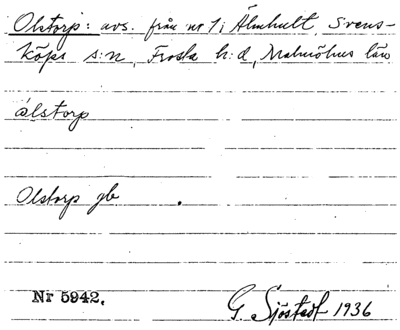 Olstorp: avs. från nr 1 i Älmhult, Svens-
köps s:n, Frosta h:d, Malmöhus län
ålstorp
Olstorp gb .
Nr 5942.
G. Sjöstedt 1936